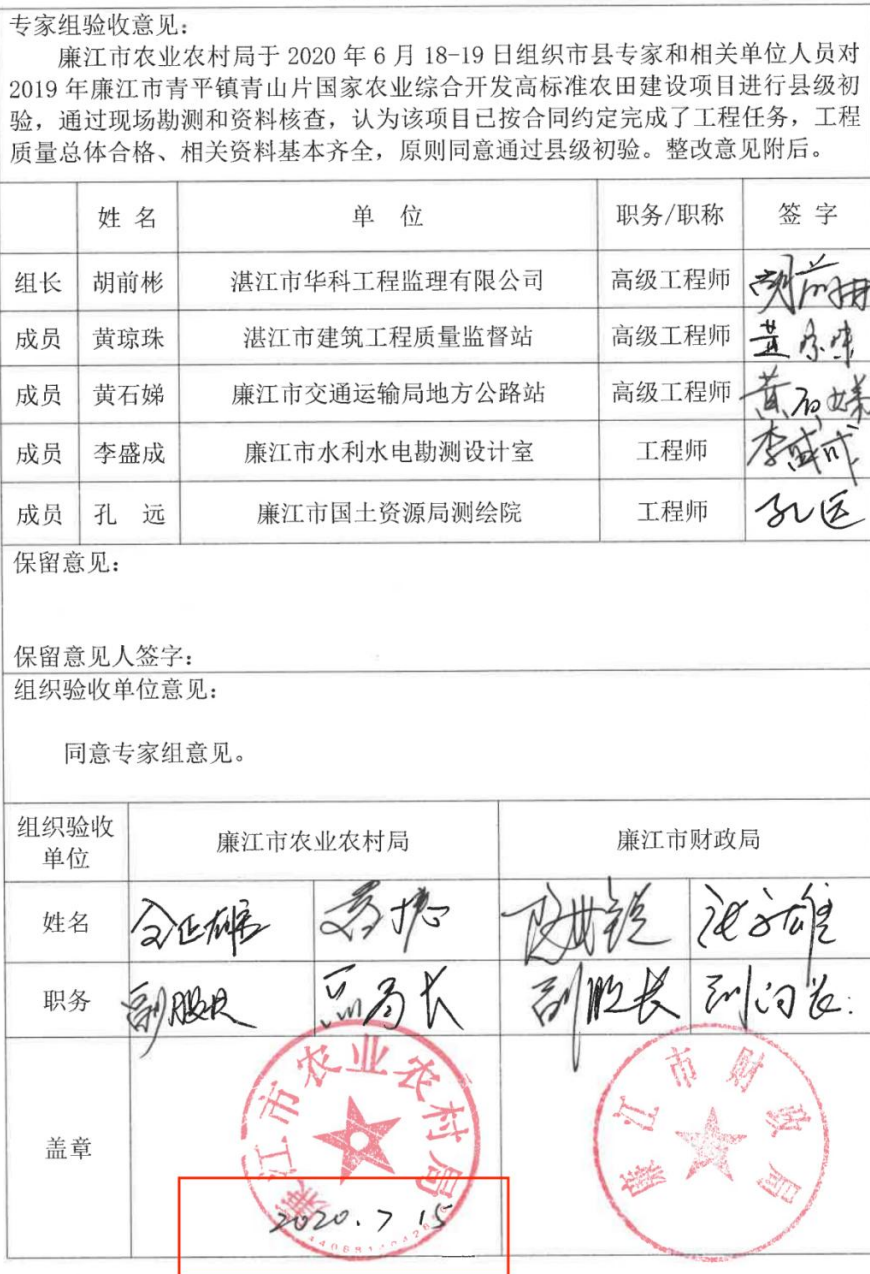 专家组验收意见：
廉江市农业农村局于 2020 年 6 月 18-19 日组织市县专家和相关单位人员对
2019 年廉江市青平镇青山片国家农业综合开发高标准农田建设项目进行县级初
验，通过现场勘测和资料核查，认为该项目已按合同约定完成了工程任务，工程
质量总体合格、相关资料基本齐全，原则同意通过县级初验。整改意见附后。
姓 名 单 位 职务/职称 签 字
组长 胡前彬 湛江市华科工程监理有限公司 高级工程师 胡前彬
成员 黄琼珠 湛江市建筑工程质量监督站 高级工程师 黄琼珠
成员 黄石娣 廉江市交通运输局地方公路站 高级工程师 黄石娣
成员 李盛成 廉江市水利水电勘测设计室 工程师 李盛成
成员 孔 远 廉江市国土资源局测绘院 工程师 孔远
保留意见：
保留意见人签字：
组织验收单位意见：
同意专家组意见。
组织验收
单位
廉江市农业农村局 廉江市财政局
姓名
职务 副股长 副局长 副股长 副局长
盖章
廉江市农业农村局
2020.7 15
廉江市财政局